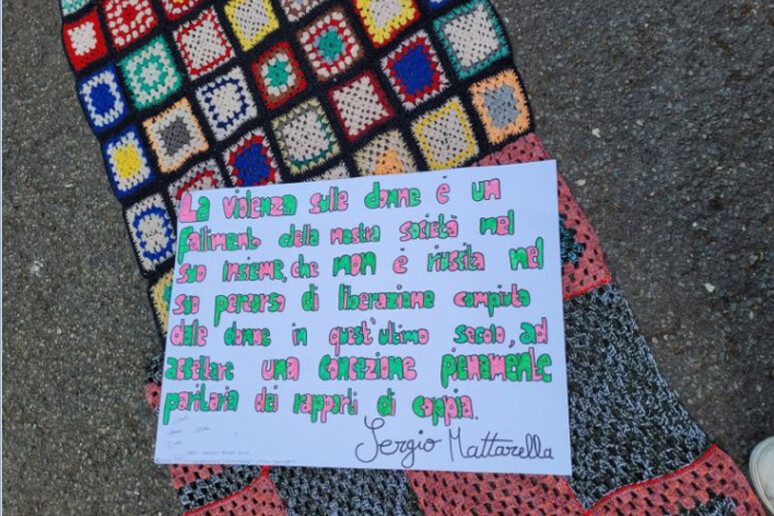 La violenza sulle donne è un
fallimento della nostra società nel
suo insieme, che non è riuscita nel
suo percorso di liberazione compiuta
dalle donne in quest'ultimo secolo, ad
accettare una concezione pienamente
paritaria dei rapporti di coppia.
Sergio Mattarella